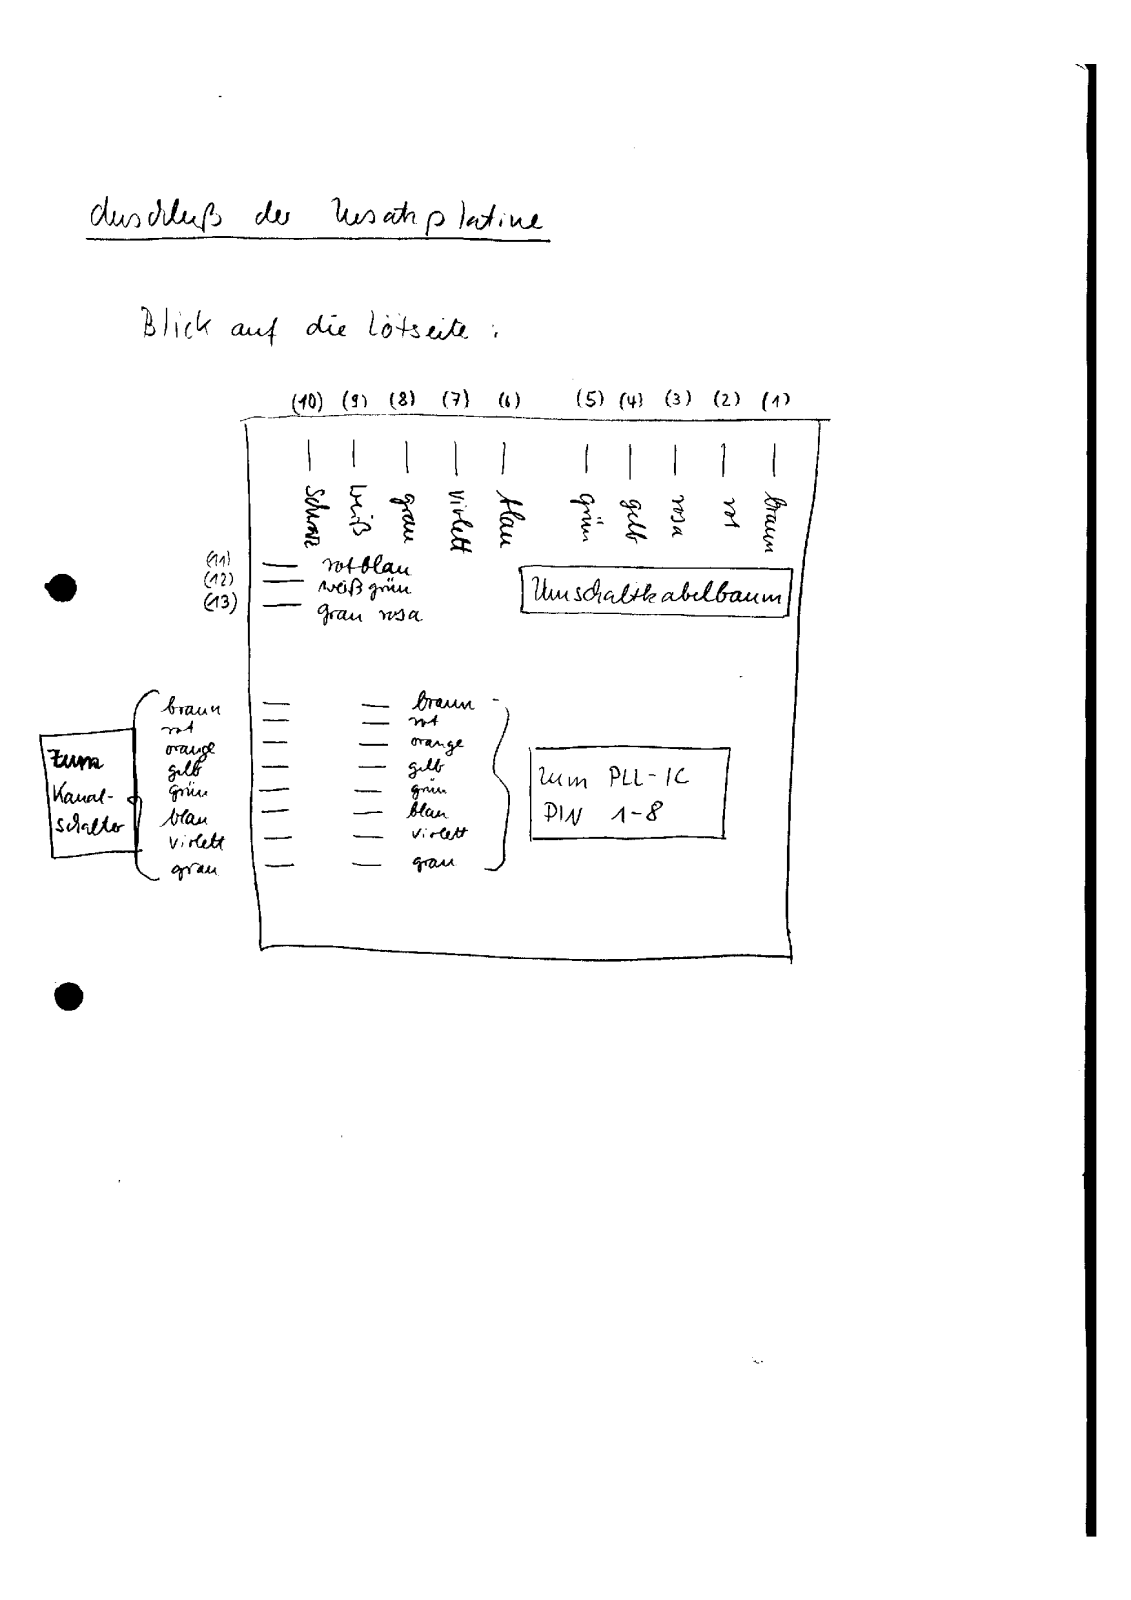 Anschluß der Zusatzplatine
Blick auf die Lötseite :
(10) (9) (8) (7) (6) (5) (4) (3) (2) (1)
schwarz weiß grau violett blau grün gelb rosa rot braun
(11) rotblau
(12) weißgrün
(13) grau rosa
Umschaltkabelbaum
braun braun
rot rot
orange orange
gelb gelb
grün grün
blau blau
violett violett
grau grau
Zum
Kanal-
schalter
zum PLL-IC
PIN 1-8